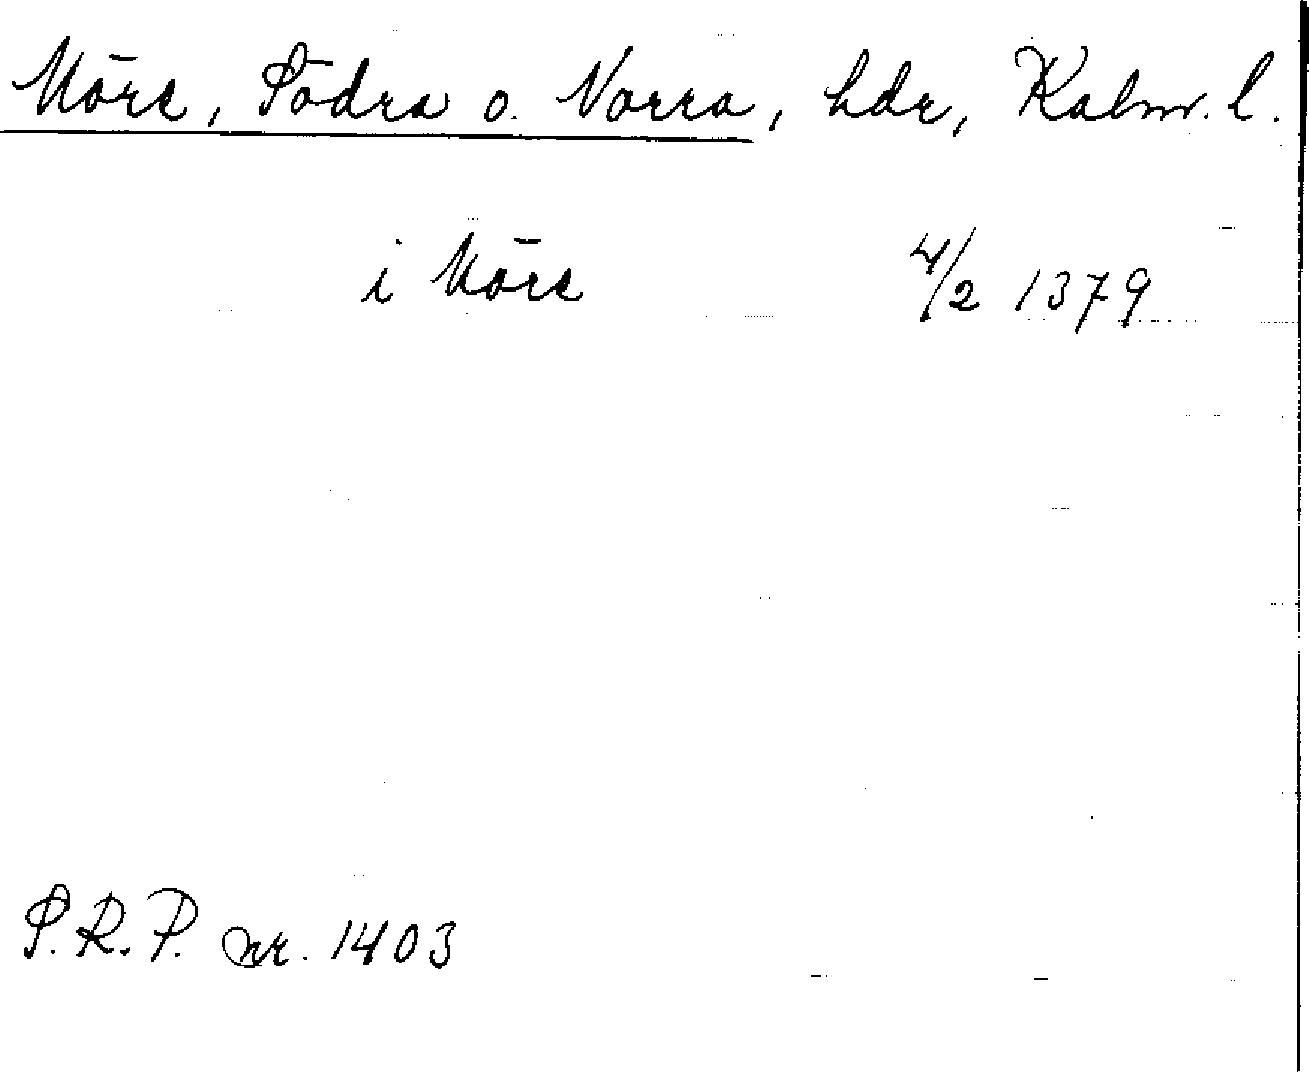 Möre, Södra o. Norra, hdr, Kalm. l.
i Möre 4/2 1379
S.R.P. nr. 1403